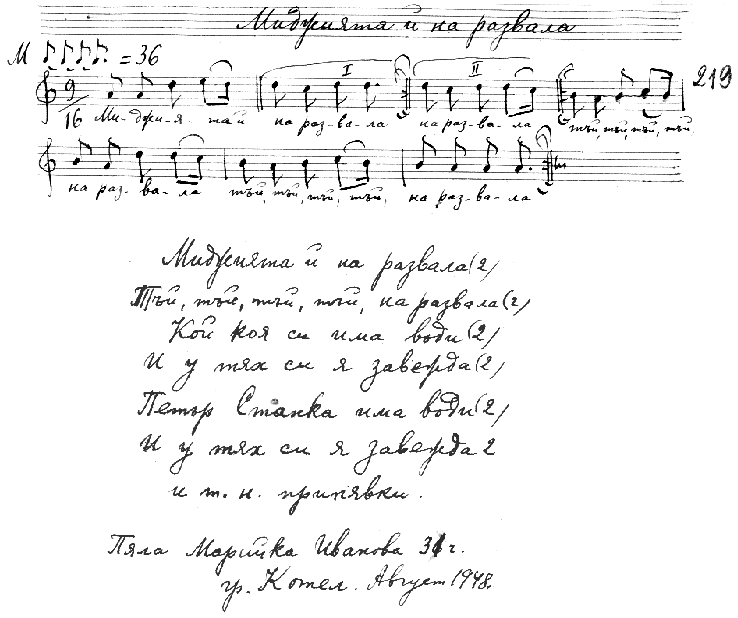 Миджията й на развала
М = 36
219
9/16 Ми-джи-я-тай на раз-ва-ла на раз-ва-ла тъй, тъй, тъй, тъй
I II
на раз-ва-ла тъй, тъй, тъй, тъй, на раз-ва-ла
Миджията й на развала (2)
Тъй, тъй, тъй, тъй, на развала (2)
Кой коя си има води (2)
И у тях си я завежда (2)
Петър Станка има води (2)
И у тях си я завежда 2
и т. н. припявки.
Пяла Марийка Иванова 31 г.
гр. Котел. Август 1948.